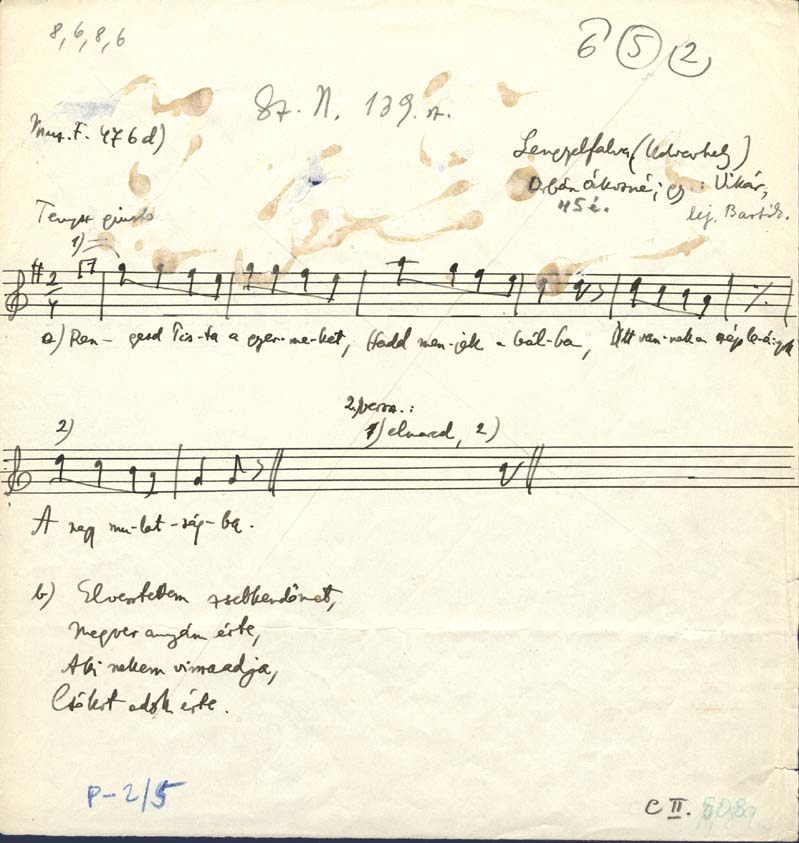 8, 6, 8, 6
6 5 2
Sz. N. 139. sz.
Muz. F. 476 d)
Lengyelfalva (Udvarhely)
Orbán Ákosné; gy.: Vikár,
45 é.
lej. Bartók.
Tempo giusto
1)
2/4
a) Ren-gesd Pis-ta a gyer-me-ket, Hadd men-jek a bál-ba, Ott van-nak a szép le-á-nyok
2. versz.:
2)
1) elmarad, 2)
A nagy mu-lat-ság-ba.
b) Elvesztettem zsebkendőmet,
Megver anyám érte,
Aki nekem visszaadja,
Csókot adok érte.
P-2/5
C II.